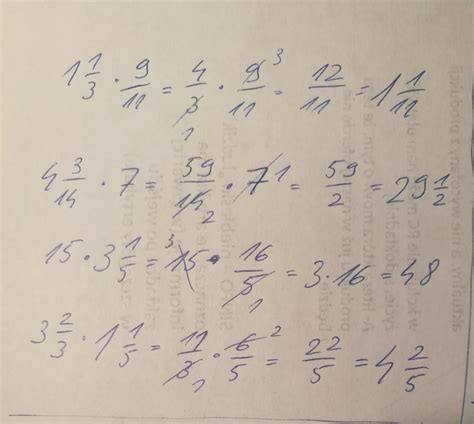 1 1/3 · 9/11 = 4/3 1 · 9/11 3 = 12/11 = 1 1/11
4 3/14 · 7 = 59/14 2 · 7 1 = 59/2 = 29 1/2
15 · 3 1/5 = 3 15 · 16/5 1 = 3 · 16 = 48
3 2/3 · 1 1/5 = 11/3 1 · 6/5 2 = 22/5 = 4 2/5